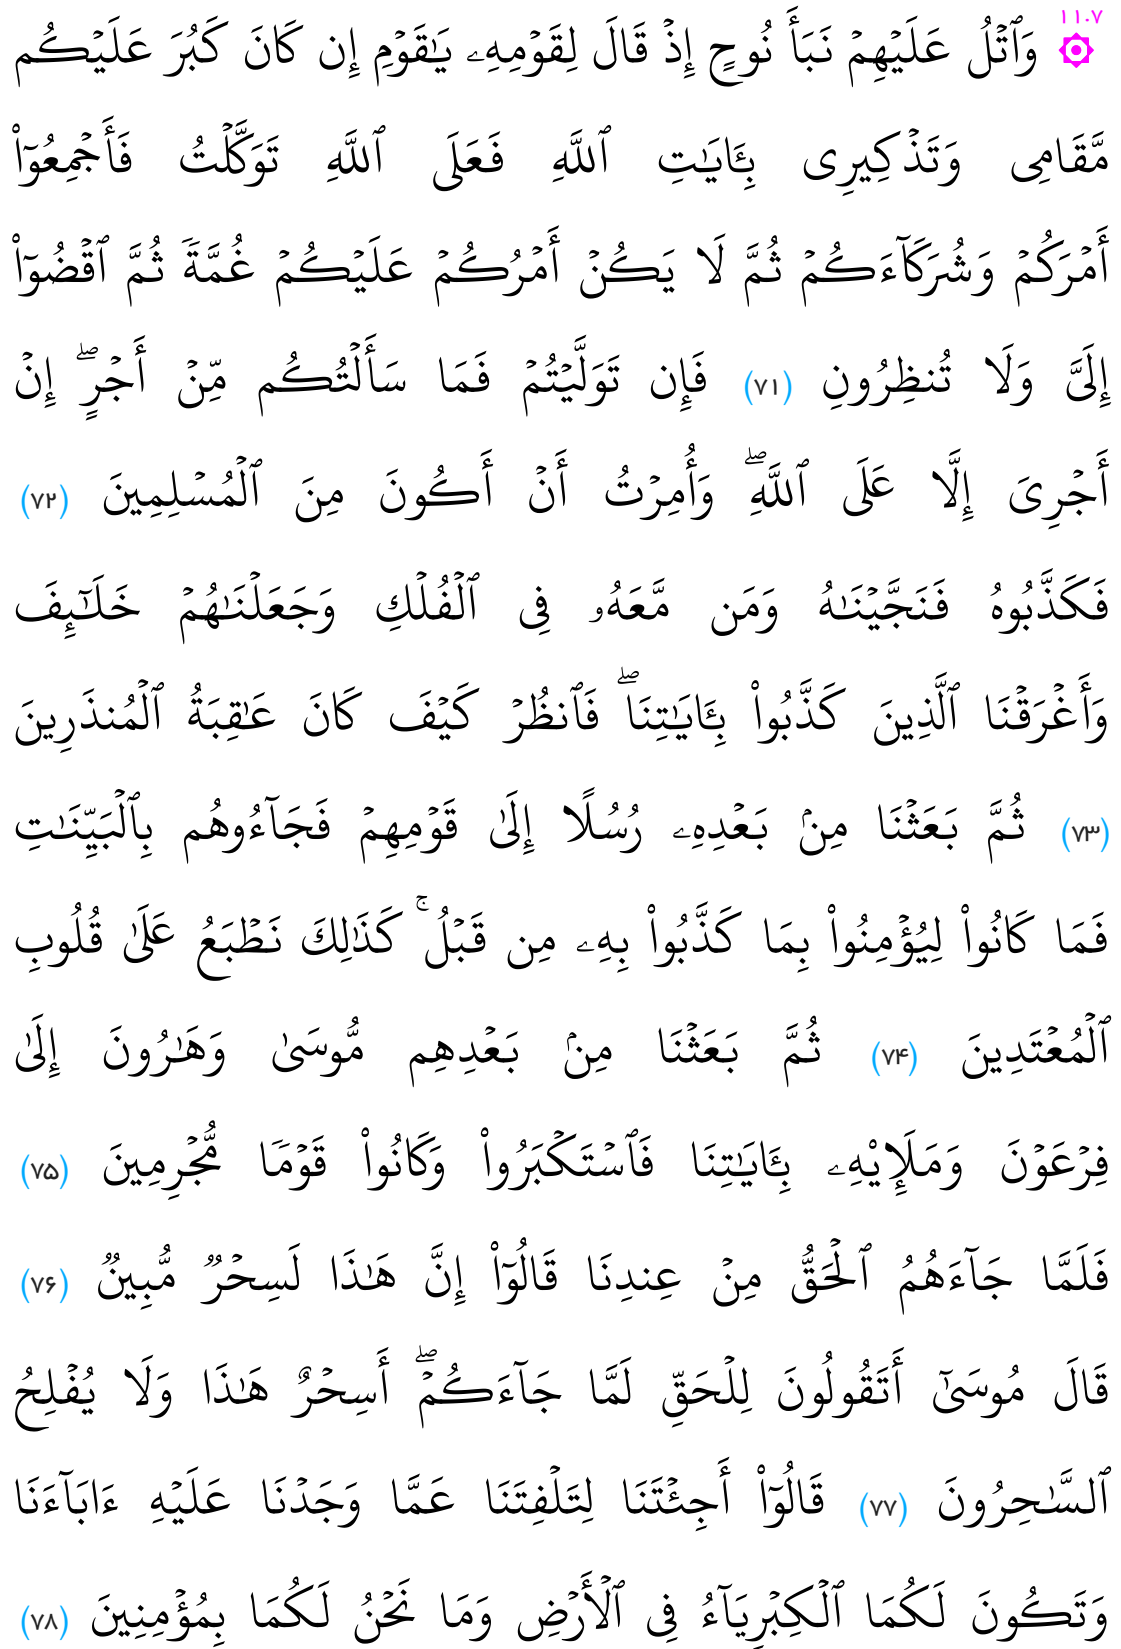 ۱۱.۷
۞ وَٱتۡلُ عَلَيۡهِمۡ نَبَأَ نُوحٍ إِذۡ قَالَ لِقَوۡمِهِۦ يَٰقَوۡمِ إِن كَانَ كَبُرَ عَلَيۡكُم
مَّقَامِى وَتَذۡكِيرِى بِـَٔايَٰتِ ٱللَّهِ فَعَلَى ٱللَّهِ تَوَكَّلۡتُ فَأَجۡمِعُوٓاْ
أَمۡرَكُمۡ وَشُرَكَآءَكُمۡ ثُمَّ لَا يَكُنۡ أَمۡرُكُمۡ عَلَيۡكُمۡ غُمَّةٗ ثُمَّ ٱقۡضُوٓاْ
إِلَىَّ وَلَا تُنظِرُونِ (۷۱) فَإِن تَوَلَّيۡتُمۡ فَمَا سَأَلۡتُكُم مِّنۡ أَجۡرٍۖ إِنۡ
أَجۡرِىَ إِلَّا عَلَى ٱللَّهِۖ وَأُمِرۡتُ أَنۡ أَكُونَ مِنَ ٱلۡمُسۡلِمِينَ (۷۲)
فَكَذَّبُوهُ فَنَجَّيۡنَٰهُ وَمَن مَّعَهُۥ فِى ٱلۡفُلۡكِ وَجَعَلۡنَٰهُمۡ خَلَٰٓئِفَ
وَأَغۡرَقۡنَا ٱلَّذِينَ كَذَّبُواْ بِـَٔايَٰتِنَاۖ فَٱنظُرۡ كَيۡفَ كَانَ عَٰقِبَةُ ٱلۡمُنذَرِينَ
(۷۳) ثُمَّ بَعَثۡنَا مِنۢ بَعۡدِهِۦ رُسُلًا إِلَىٰ قَوۡمِهِمۡ فَجَآءُوهُم بِٱلۡبَيِّنَٰتِ
فَمَا كَانُواْ لِيُؤۡمِنُواْ بِمَا كَذَّبُواْ بِهِۦ مِن قَبۡلُۚ كَذَٰلِكَ نَطۡبَعُ عَلَىٰ قُلُوبِ
ٱلۡمُعۡتَدِينَ (۷۴) ثُمَّ بَعَثۡنَا مِنۢ بَعۡدِهِم مُّوسَىٰ وَهَٰرُونَ إِلَىٰ
فِرۡعَوۡنَ وَمَلَإِيْهِۦ بِـَٔايَٰتِنَا فَٱسۡتَكۡبَرُواْ وَكَانُواْ قَوۡمٗا مُّجۡرِمِينَ (۷۵)
فَلَمَّا جَآءَهُمُ ٱلۡحَقُّ مِنۡ عِندِنَا قَالُوٓاْ إِنَّ هَٰذَا لَسِحۡرٞ مُّبِينٞ (۷۶)
قَالَ مُوسَىٰٓ أَتَقُولُونَ لِلۡحَقِّ لَمَّا جَآءَكُمۡۖ أَسِحۡرٌ هَٰذَا وَلَا يُفۡلِحُ
ٱلسَّٰحِرُونَ (۷۷) قَالُوٓاْ أَجِئۡتَنَا لِتَلۡفِتَنَا عَمَّا وَجَدۡنَا عَلَيۡهِ ءَابَآءَنَا
وَتَكُونَ لَكُمَا ٱلۡكِبۡرِيَآءُ فِى ٱلۡأَرۡضِ وَمَا نَحۡنُ لَكُمَا بِمُؤۡمِنِينَ (۷۸)